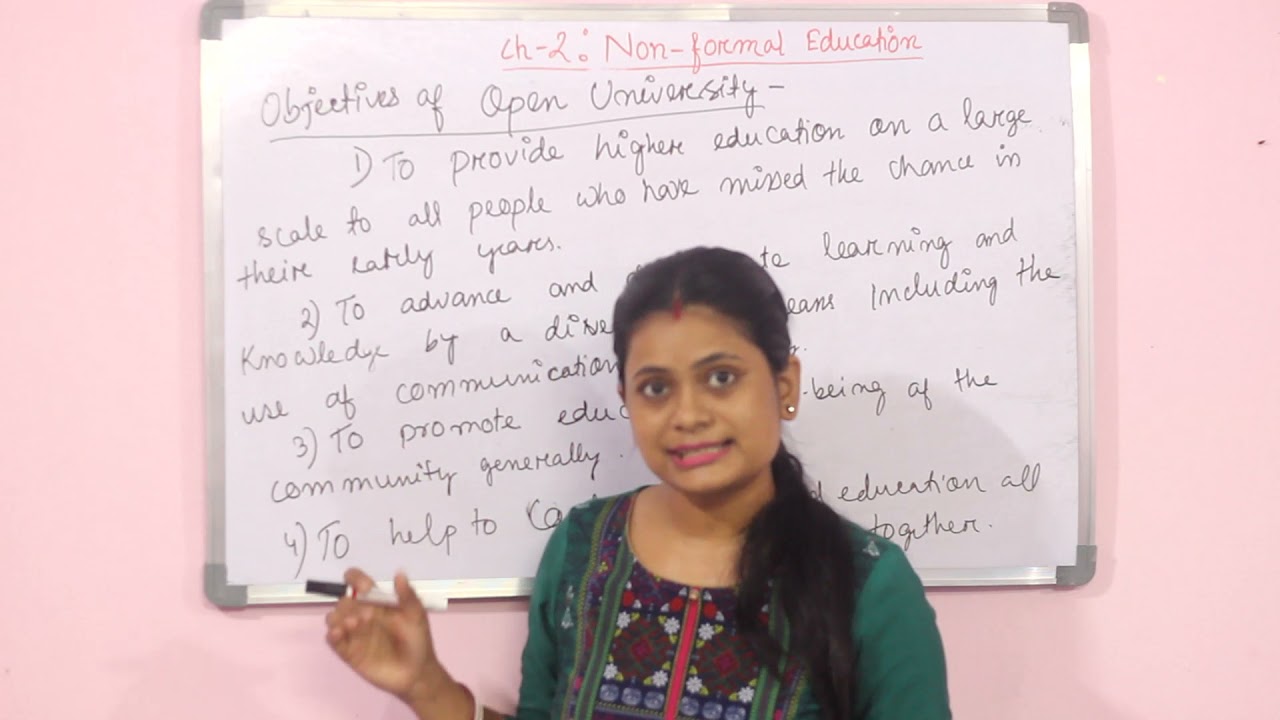 Ch-2: Non-formal Education
Objectives of Open University -
1) To provide higher education on a large
scale to all people who have missed the chance in
their early years.
2) To advance and learning and
Knowledge by a including the
use of communication
3) To promote being of the
community generally.
4) To help to education all
together.